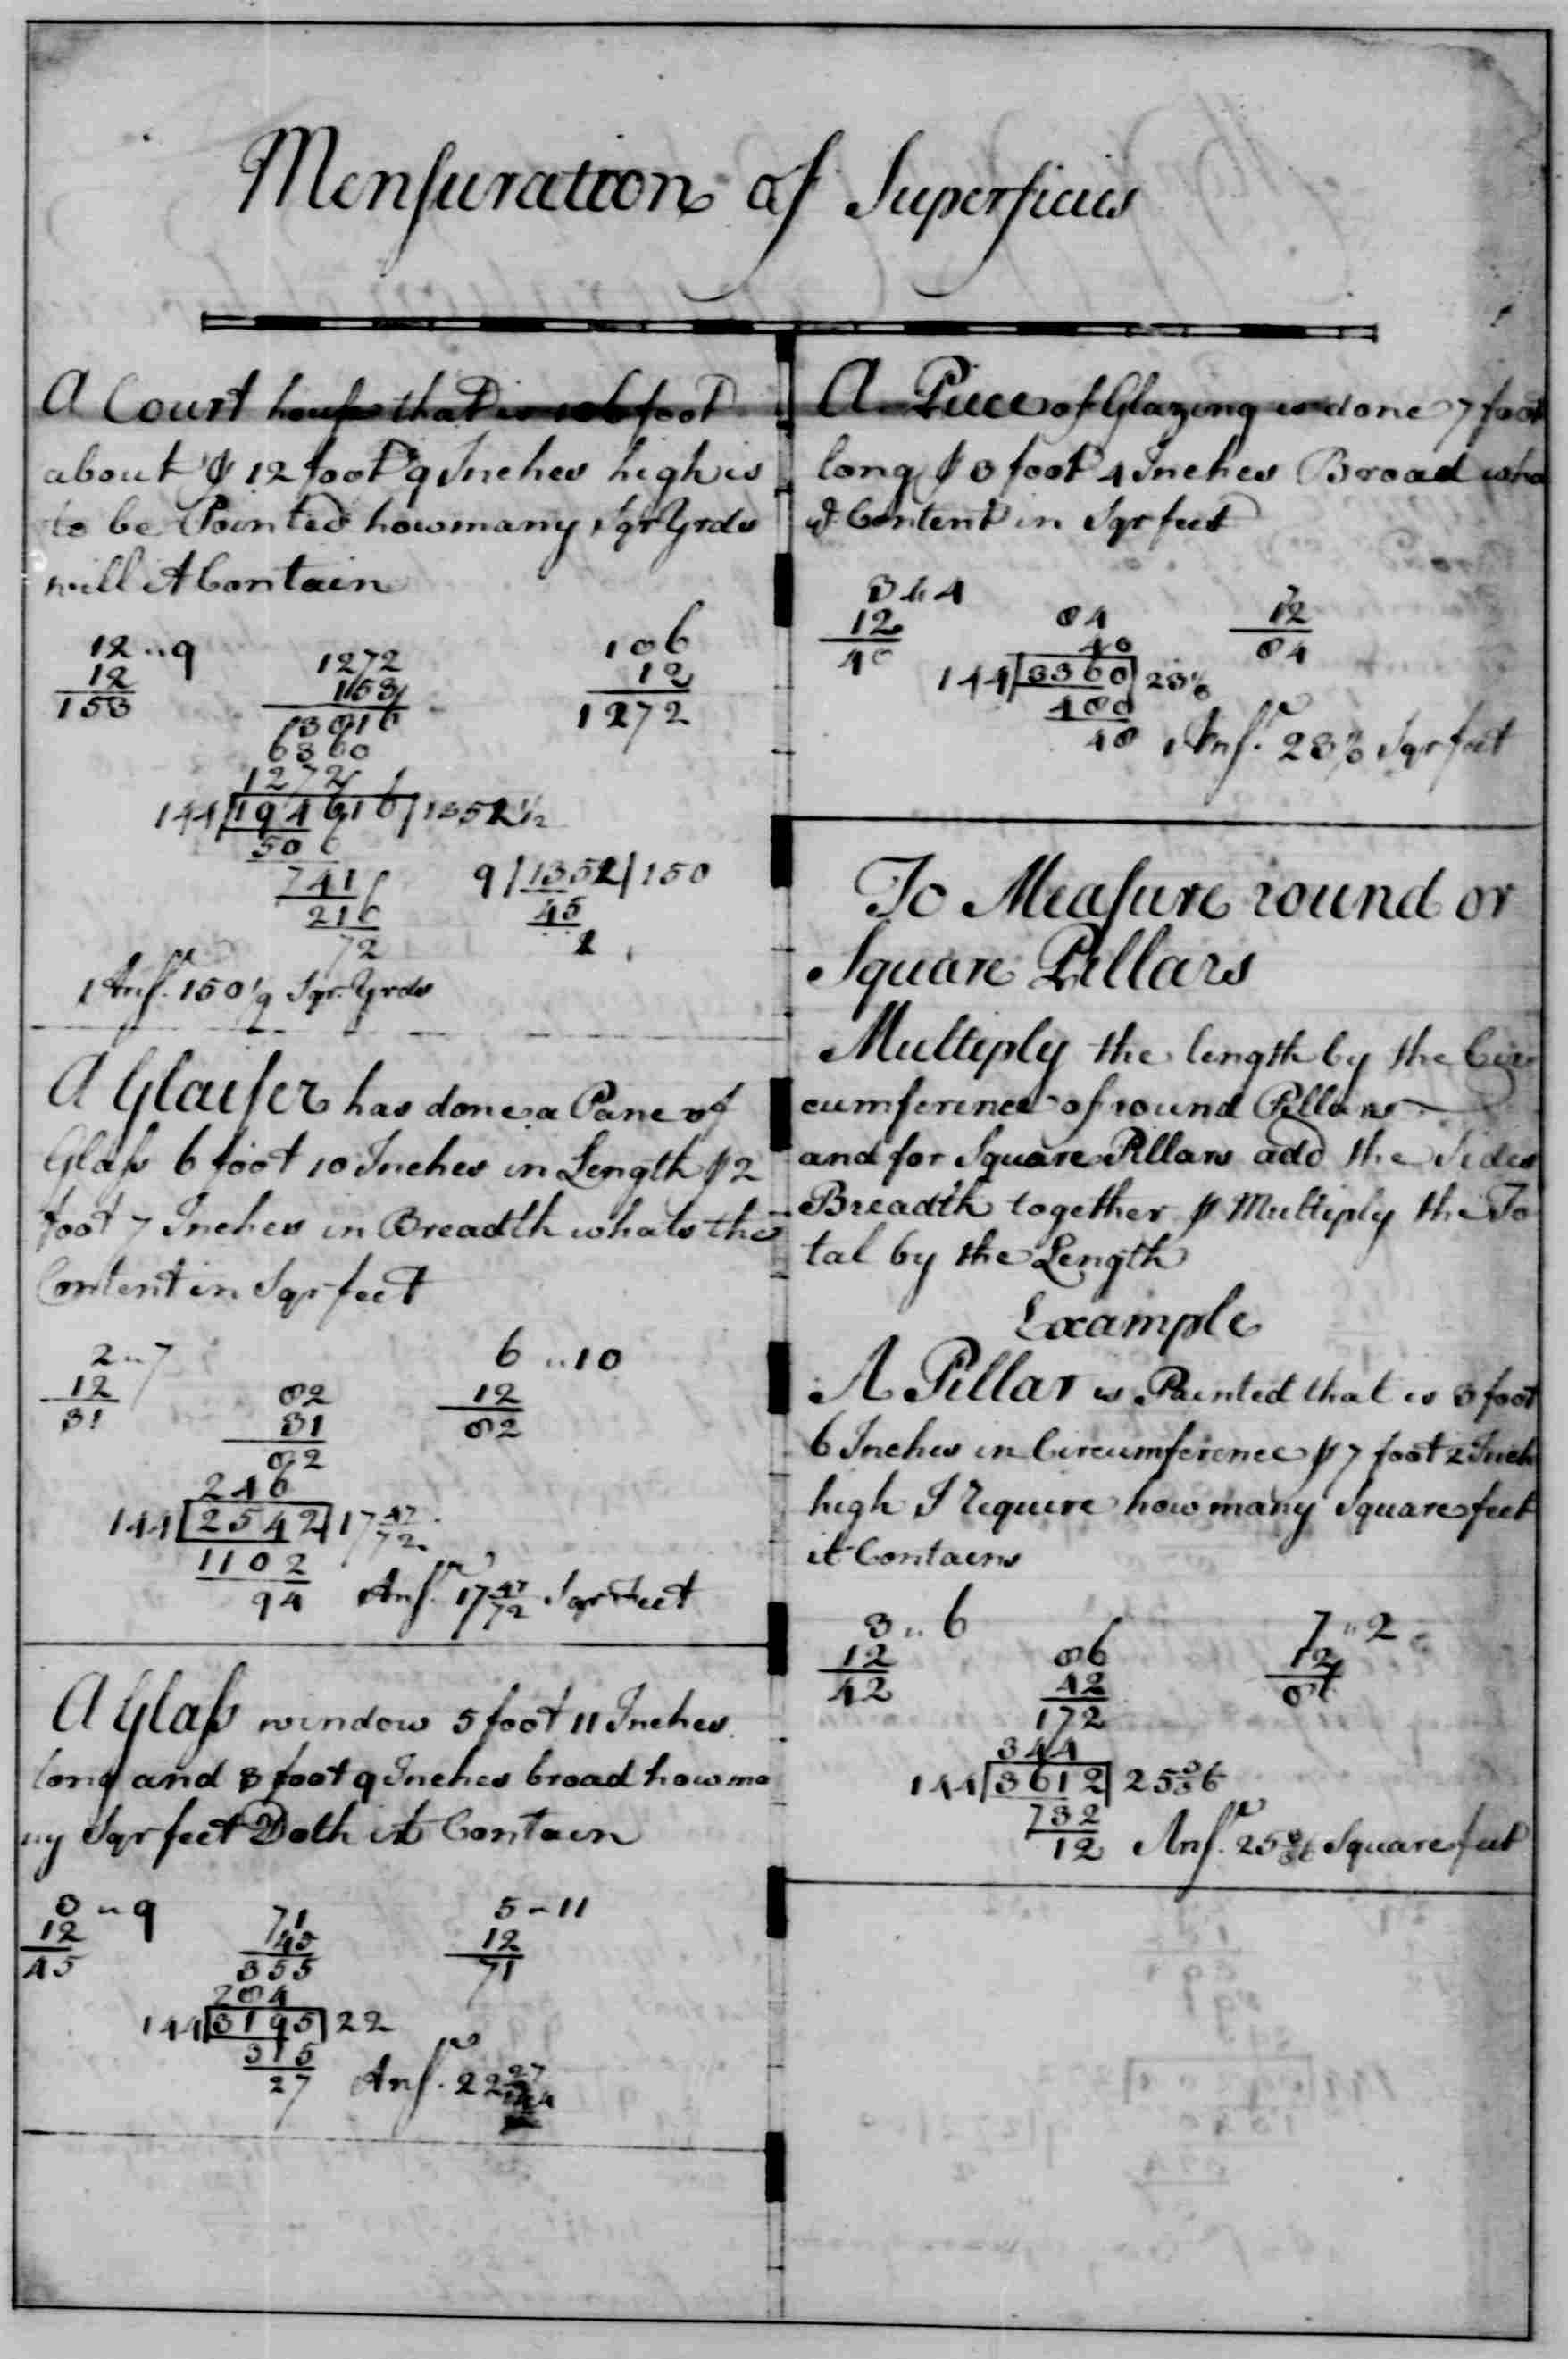 Mensuration of Superficies
A Court house that is 106 foot
about & 12 foot 9 Inches high is
to be Painted how many Sqr Yrds
will it Contain
12 .. 9
12
153
1272
153
13816
6360
1272
144 194616 1352 1/2
506
741
216
72
106
12
1272
9 / 1352 / 150
45
2
Ansr. 150 1/9 Sqr. Yrds
A Glaiser has done a Pane of
Glass 6 foot 10 Inches in Length & 2
foot 7 Inches in Breadth whats the
Content in Sqr feet
2 .. 7
12
31
82
31
82
246
144 2542 17 47/72
1102
94
6 .. 10
12
82
Ansr. 17 47/72 Sqr Feet
A Glass window 5 foot 11 Inches
long and 3 foot 9 Inches broad how ma
ny Sqr feet Doth it Contain
3 .. 9
12
45
71
45
355
284
144 3195 22
315
27
5 .. 11
12
71
Ansr. 22 27/144
A Piece of Glazing is done 7 foot
long & 3 foot 4 Inches Broad wha
ye. Content in Sqr feet
3 .. 4
12
40
84
40
144 3360 23
480
48
7
12
84
Ansr. 23 Sqr feet
To Measure round or
Square Pillars
Multiply the length by the Cir
cumference of round Pillars
and for Square Pillars add the Sides
Breadth together & Multiply the To
tal by the Length
Example
A Pillar is Painted that is 3 foot
6 Inches in Circumference & 7 foot 2 Inch
high I require how many Square feet
it Contains
3 .. 6
12
42
86
42
172
344
144 3612 25 3/36
732
12
7 .. 2
12
86
Ansr. 25 3/36 Square feet